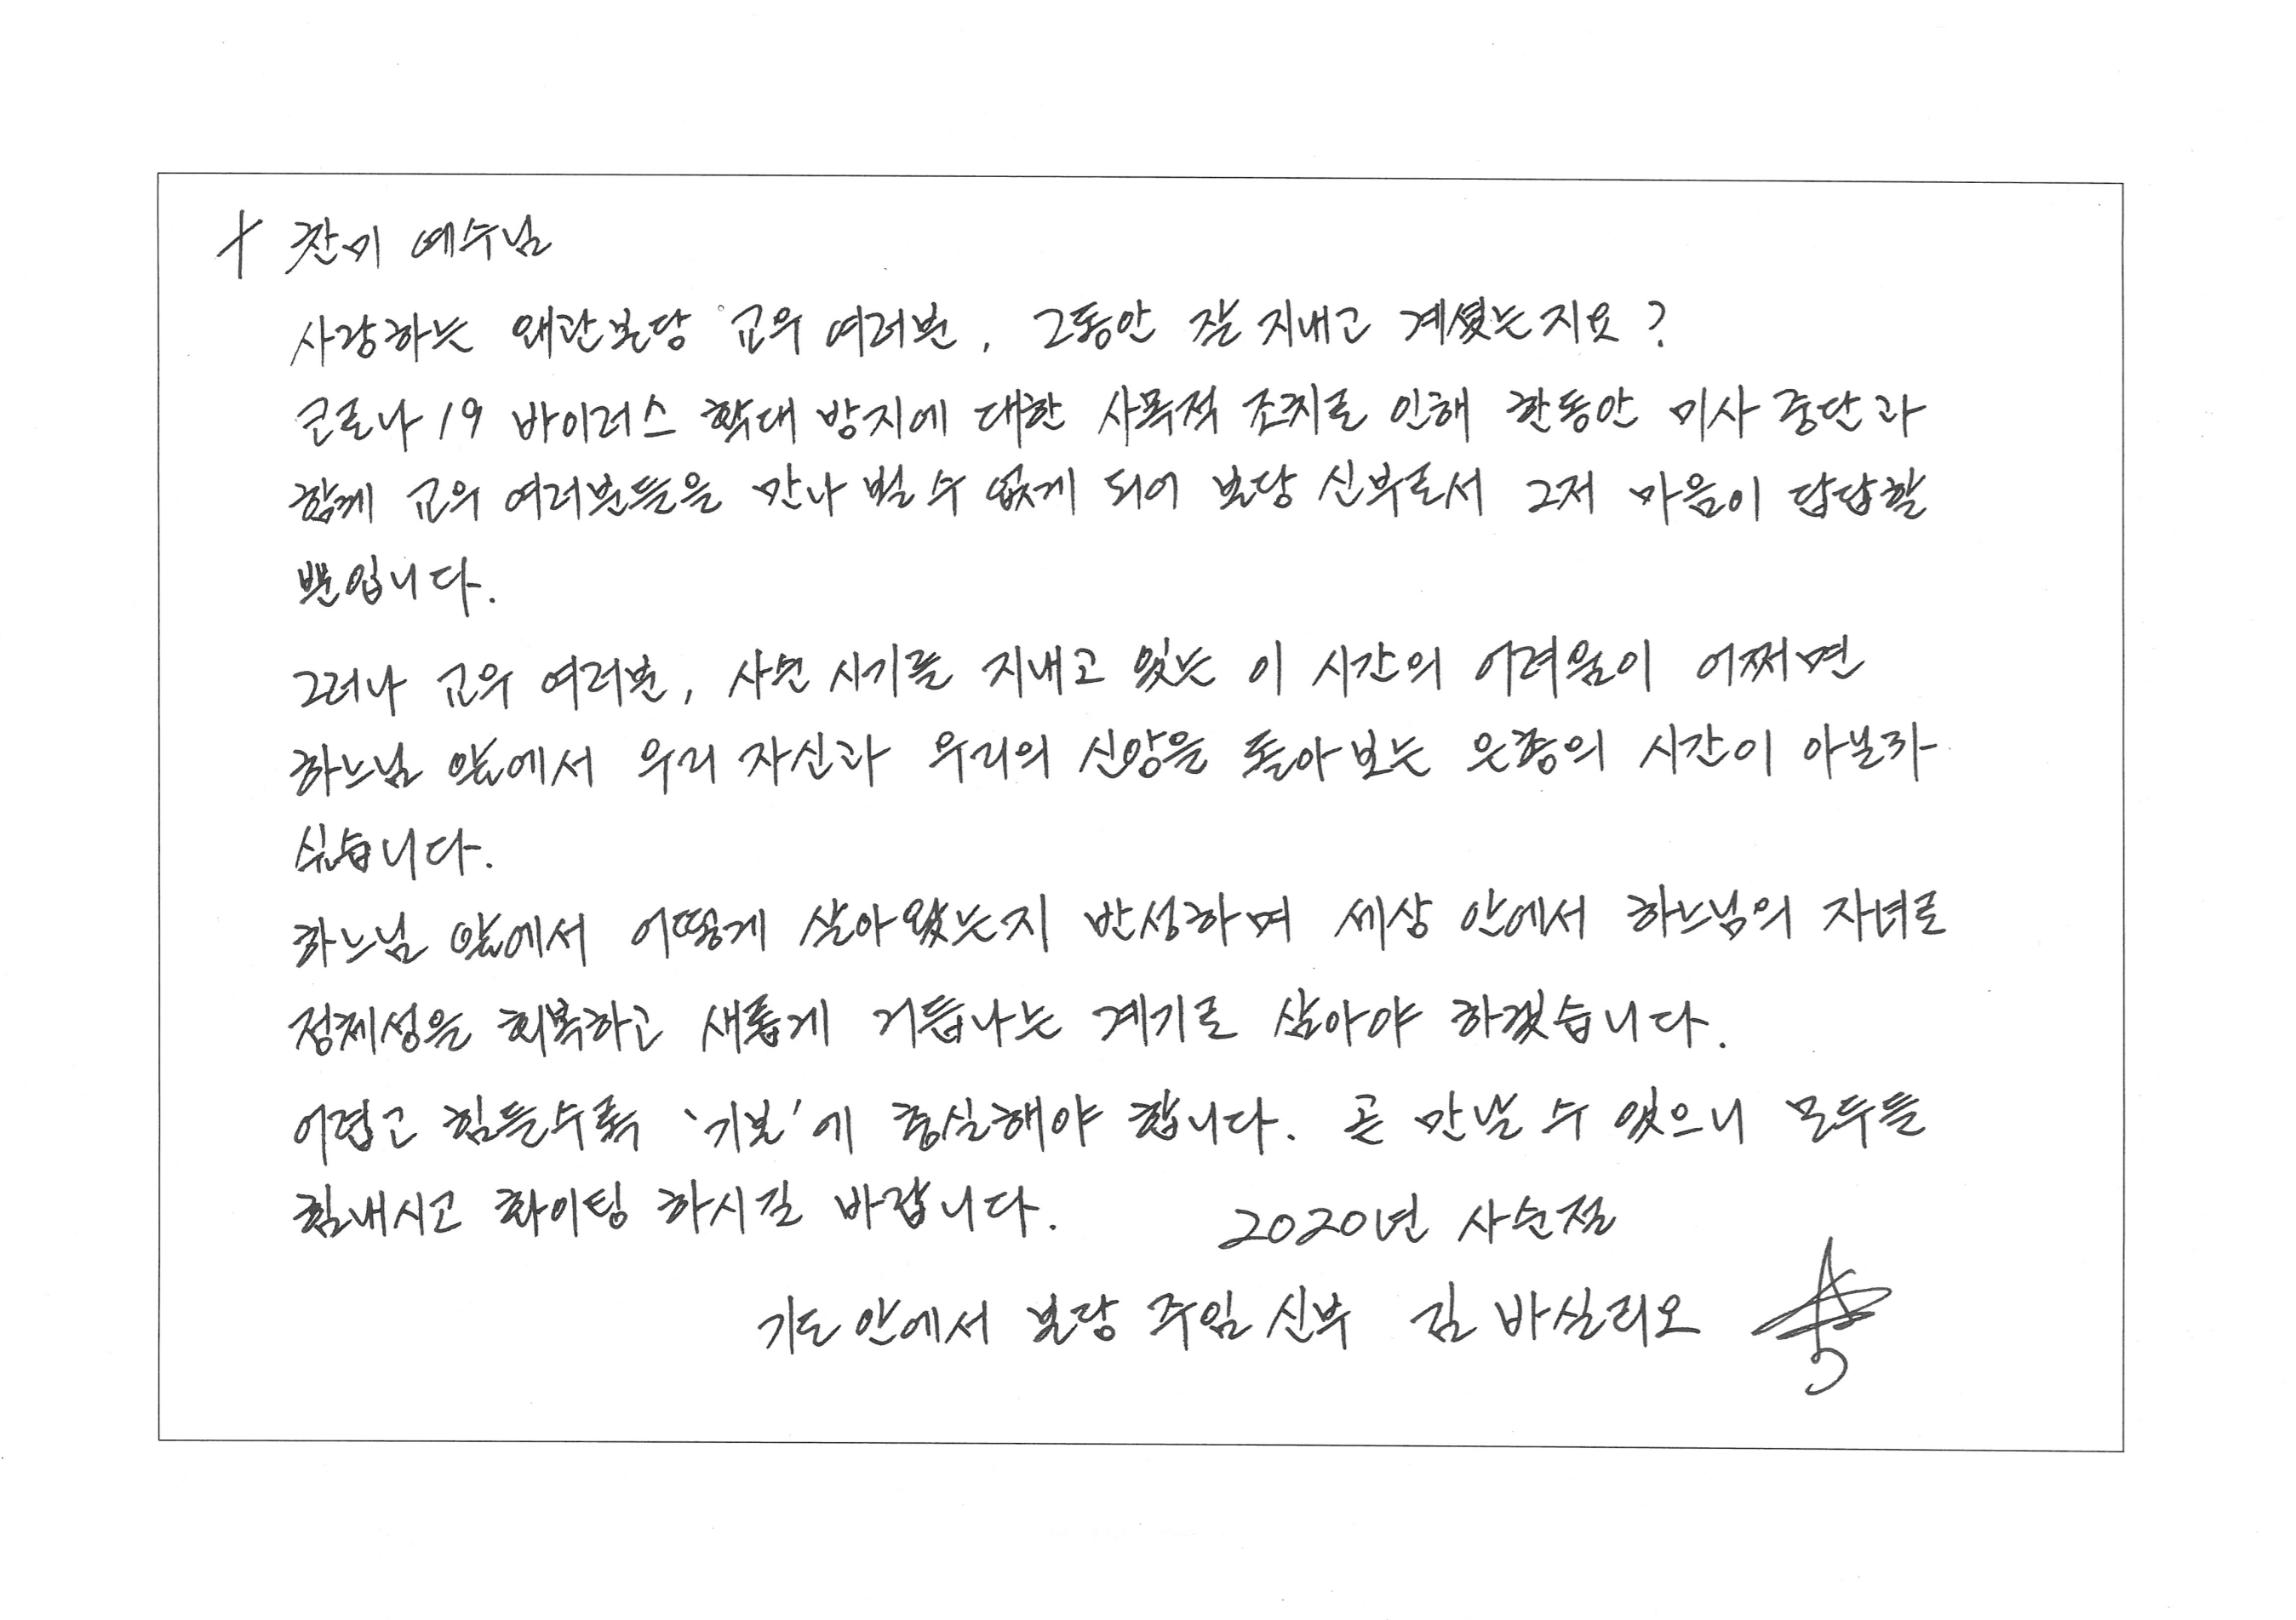 † 찬미 예수님
사랑하는 왜관본당 교우 여러분, 그동안 잘 지내고 계셨는지요?
코로나 19 바이러스 확대 방지에 대한 사목적 조치로 인해 한동안 미사 중단과
함께 교우 여러분들을 만나 뵐 수 없게 되어 본당 신부로서 그저 마음이 답답할
뿐입니다.
그러나 교우 여러분, 사순 시기를 지내고 있는 이 시간의 어려움이 어쩌면
하느님 앞에서 우리 자신과 우리의 신앙을 돌아보는 은총의 시간이 아닐까
싶습니다.
하느님 앞에서 어떻게 살아왔는지 반성하며 세상 안에서 하느님의 자녀로
정체성을 회복하고 새롭게 거듭나는 계기로 삼아야 하겠습니다.
어렵고 힘들수록 '기본'에 충실해야 합니다. 곧 만날 수 있으니 모두들
힘내시고 화이팅 하시길 바랍니다.
2020년 사순절
기도 안에서 본당 주임 신부 김 바실리오